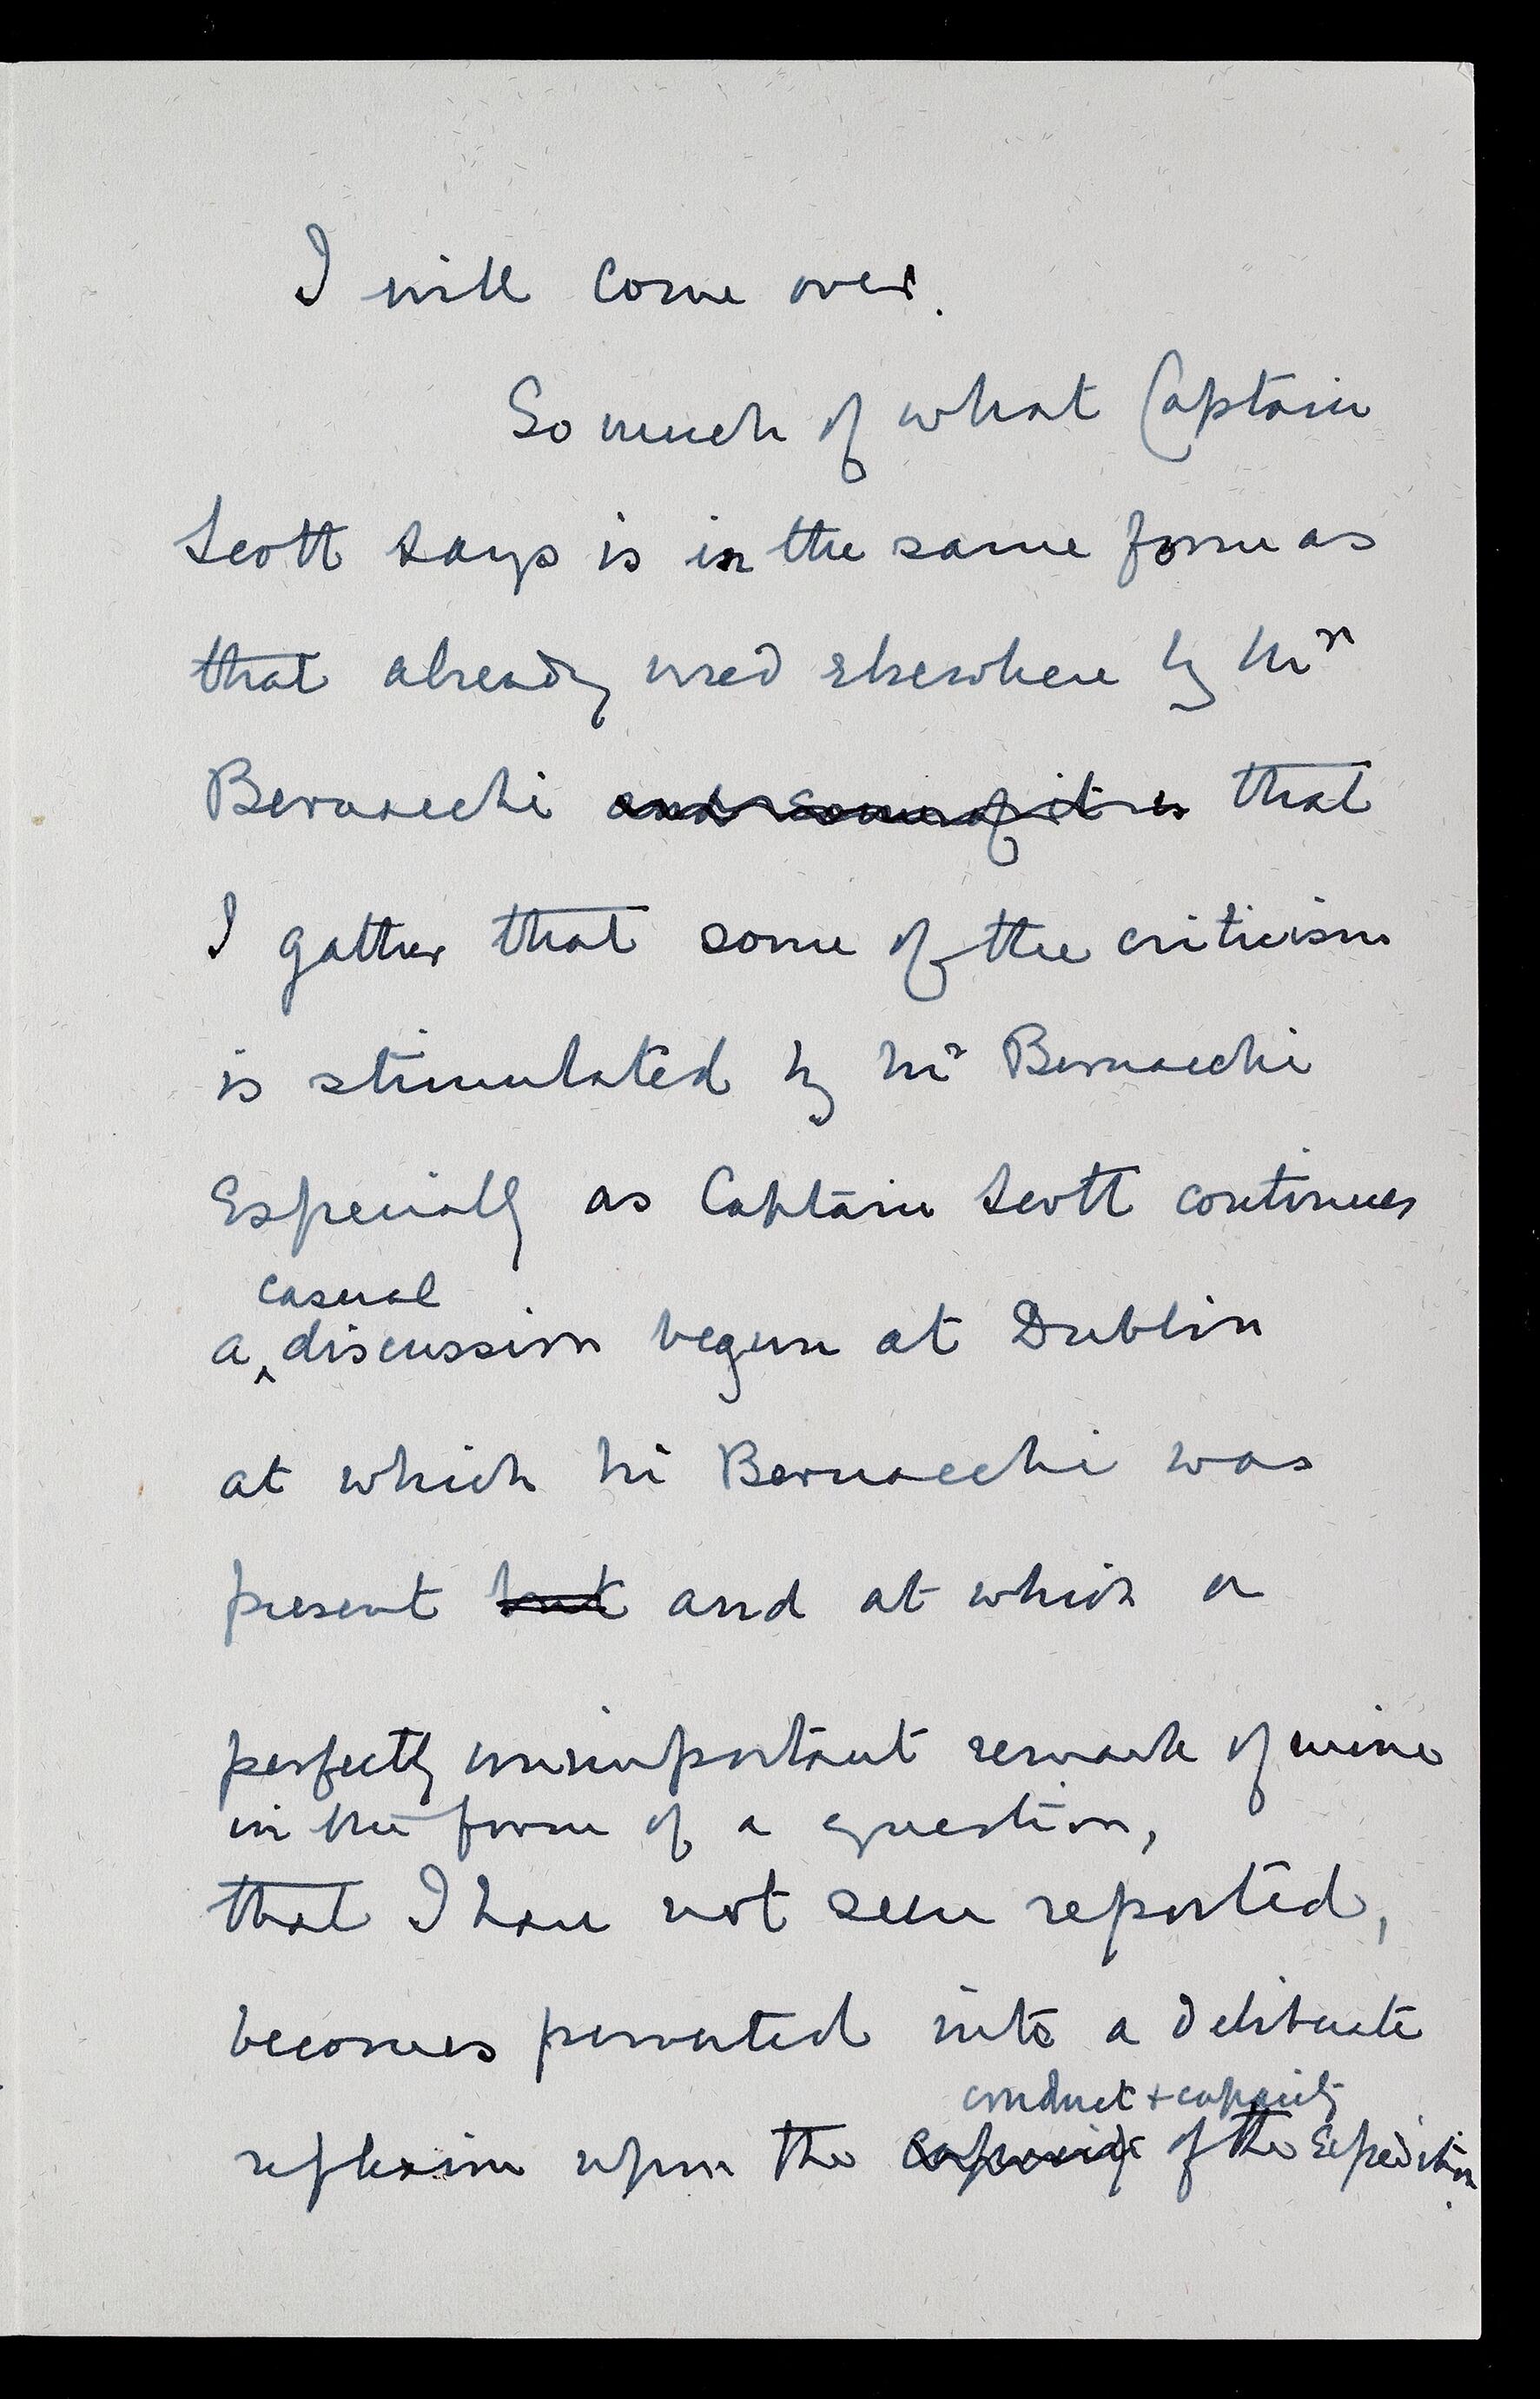 I will come over.
So much of what Captain
Scott says is in the same form as
that already used elsewhere by Mr
Bernacchi and some of it is that
I gather that some of the criticism
is stimulated by Mr Bernacchi
Especially as Captain Scott continues
casual
a discussion begun at Dublin
at which Mr Bernacchi was
present but and at which a
perfectly unimportant remark of mine
in the form of a question,
that I have not seen reported,
becomes perverted into a deliberate
conduct + capacity
reflexion upon the capacity of the Expedition.